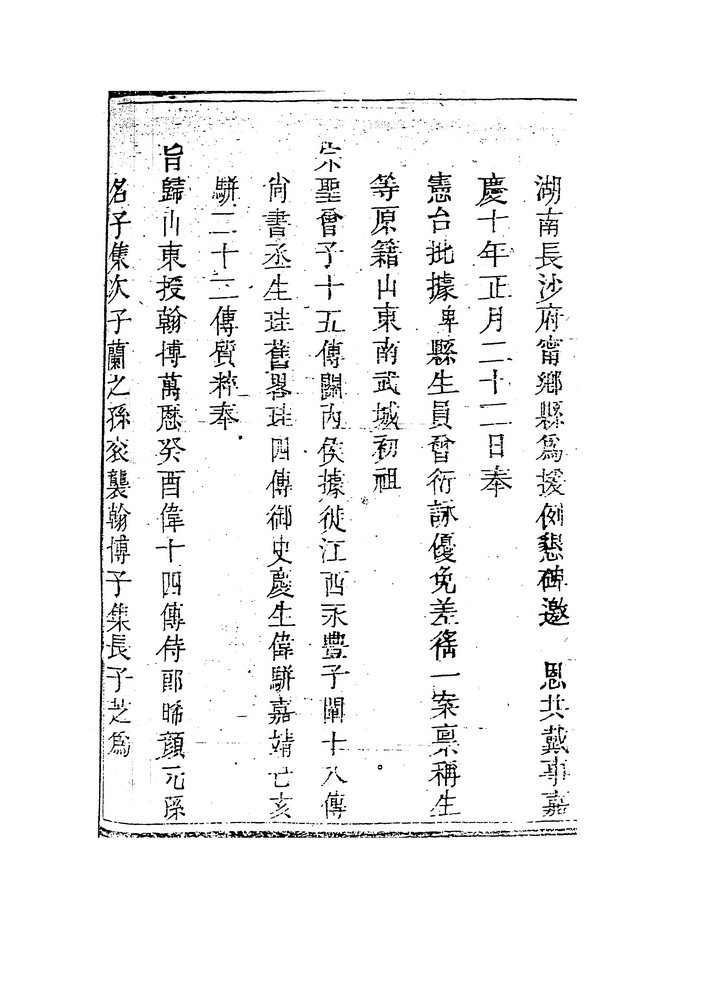 湖南長沙府甯鄉縣爲援例懇碑邀　恩共戴事嘉
慶十年正月二十二日奉
憲台批據𤰞縣生員曾衍詠優免差徭一案稟稱生
等原籍山東南武城初祖
宗聖曾子十五傳關內侯據徙江西永豐子闡十八傳
尚書丞生珪舊畧珪四傳御史慶生偉駢嘉靖乙亥
駢二十三傳質粹奉
旨歸山東授翰博萬歷癸酉偉十四傳侍郎晞顏元孫
名子集次子蘭之孫衮襲翰博子集長子芝爲